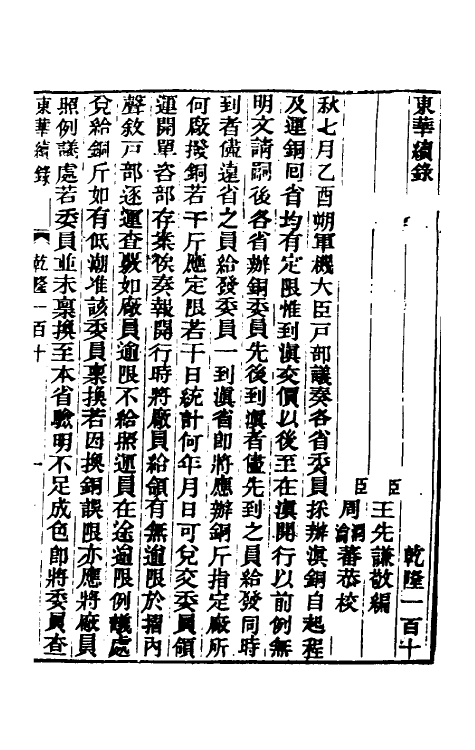 東華續錄
乾隆一百十
臣王先謙敬編
臣周潤蕃周瀹蕃恭校
秋七月乙酉朔軍機大臣戶部議奏各省委員採辦滇銅自起程
及運銅回省均有定限惟到滇交價以後至在滇開行以前例無
明文請嗣後各省辦銅委員先後到滇者儘先到之員給發同時
到者儘遠省之員給發委員一到滇省即將應辦銅斤指定廠所
何廠撥銅若干斤應定限若干日統計何年月日可兌交委員領
運開單咨部存案俟奏報開行時將廠員給領有無逾限於摺內
聲敘戶部逐運查覈如廠員逾限不給照運員在途逾限例議處
兌給銅斤如有低潮准該委員稟換若因換銅誤限亦應將廠員
照例議處若委員並未稟換至本省驗明不足成色即將委員查
東華續錄
乾隆一百十
一